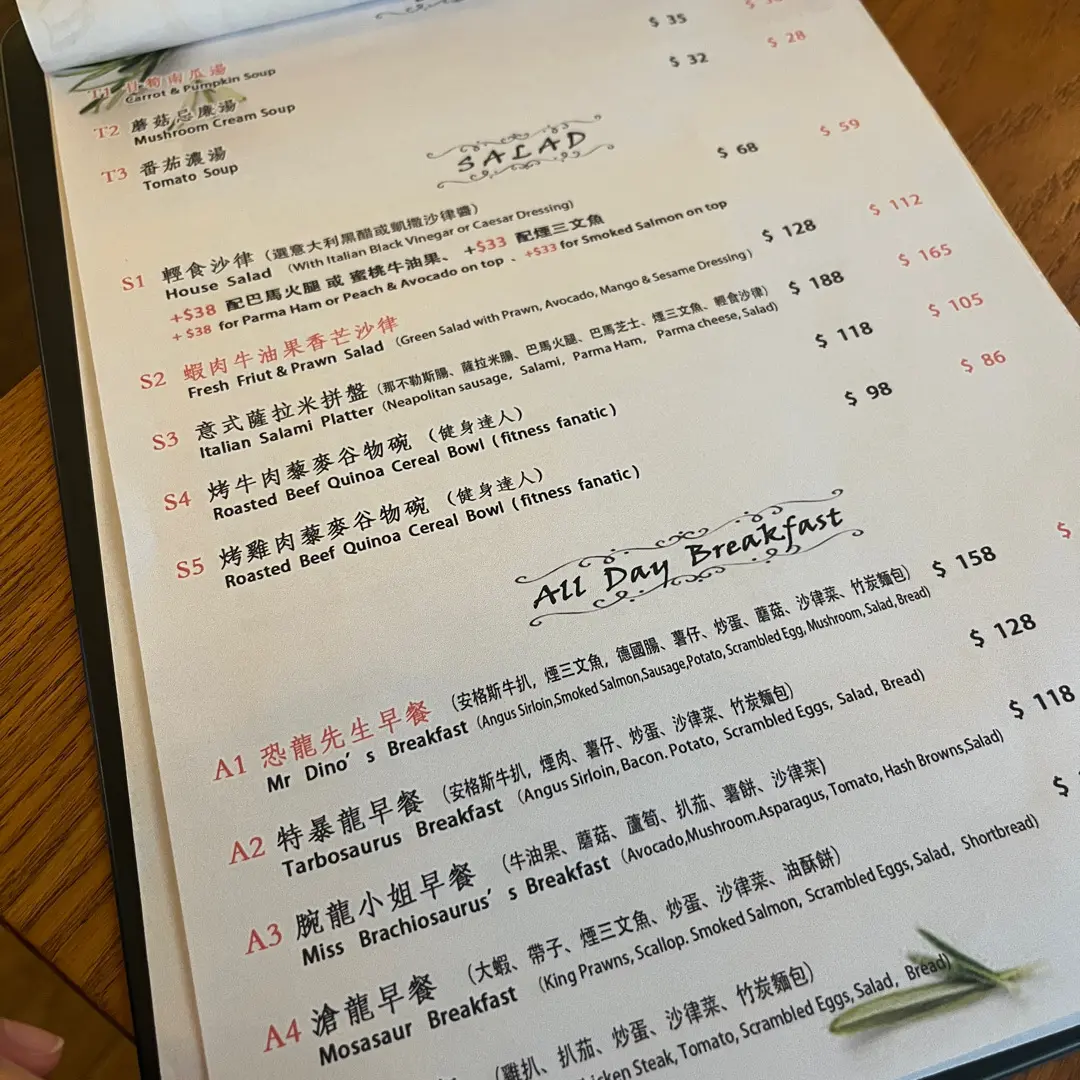 T1 甘筍南瓜湯
Carrot & Pumpkin Soup
T2 蘑菇忌廉湯 $ 35
Mushroom Cream Soup
T3 番茄濃湯 $ 32 $ 28
Tomato Soup
SALAD
S1 輕食沙律（選意大利黑醋或凱撒沙律醬） $ 68 $ 59
House Salad (With Italian Black Vinegar or Caesar Dressing)
+$38 配巴馬火腿 或 蜜桃牛油果、 +$33 配煙三文魚
+ $38 for Parma Ham or Peach & Avocado on top 、+$33 for Smoked Salmon on top
S2 蝦肉牛油果香芒沙律 $ 128 $ 112
Fresh Friut & Prawn Salad (Green Salad with Prawn, Avocado, Mango & Sesame Dressing)
S3 意式薩拉米拼盤（那不勒斯腸、薩拉米腸、巴馬火腿、巴馬芝士、煙三文魚、輕食沙律） $ 188 $ 165
Italian Salami Platter (Neapolitan sausage, Salami, Parma Ham, Parma cheese, Salad)
S4 烤牛肉藜麥谷物碗（健身達人） $ 118 $ 105
Roasted Beef Quinoa Cereal Bowl (fitness fanatic)
S5 烤雞肉藜麥谷物碗（健身達人） $ 98 $ 86
Roasted Beef Quinoa Cereal Bowl (fitness fanatic)
All Day Breakfast
A1 恐龍先生早餐（安格斯牛扒，煙三文魚，德國腸、薯仔、炒蛋、蘑菇、沙律菜、竹炭麵包） $ 158 $
Mr Dino’s Breakfast (Angus Sirloin,Smoked Salmon,Sausage,Potato, Scrambled Egg, Mushroom, Salad, Bread)
A2 特暴龍早餐（安格斯牛扒，煙肉、薯仔、炒蛋、沙律菜、竹炭麵包） $ 128
Tarbosaurus Breakfast (Angus Sirloin, Bacon. Potato, Scrambled Eggs, Salad, Bread)
A3 腕龍小姐早餐（牛油果、蘑菇、蘆筍、扒茄、薯餅、沙律菜） $ 118
Miss Brachiosaurus’s Breakfast (Avocado,Mushroom.Asparagus, Tomato, Hash Browns,Salad)
A4 滄龍早餐（大蝦、帶子、煙三文魚、炒蛋、沙律菜、油酥餅） $
Mosasaur Breakfast (King Prawns, Scallop. Smoked Salmon, Scrambled Eggs, Salad, Shortbread)
（雞扒、扒茄、炒蛋、沙律菜、竹炭麵包）
Steak, Tomato, Scrambled Eggs, Salad, Bread)